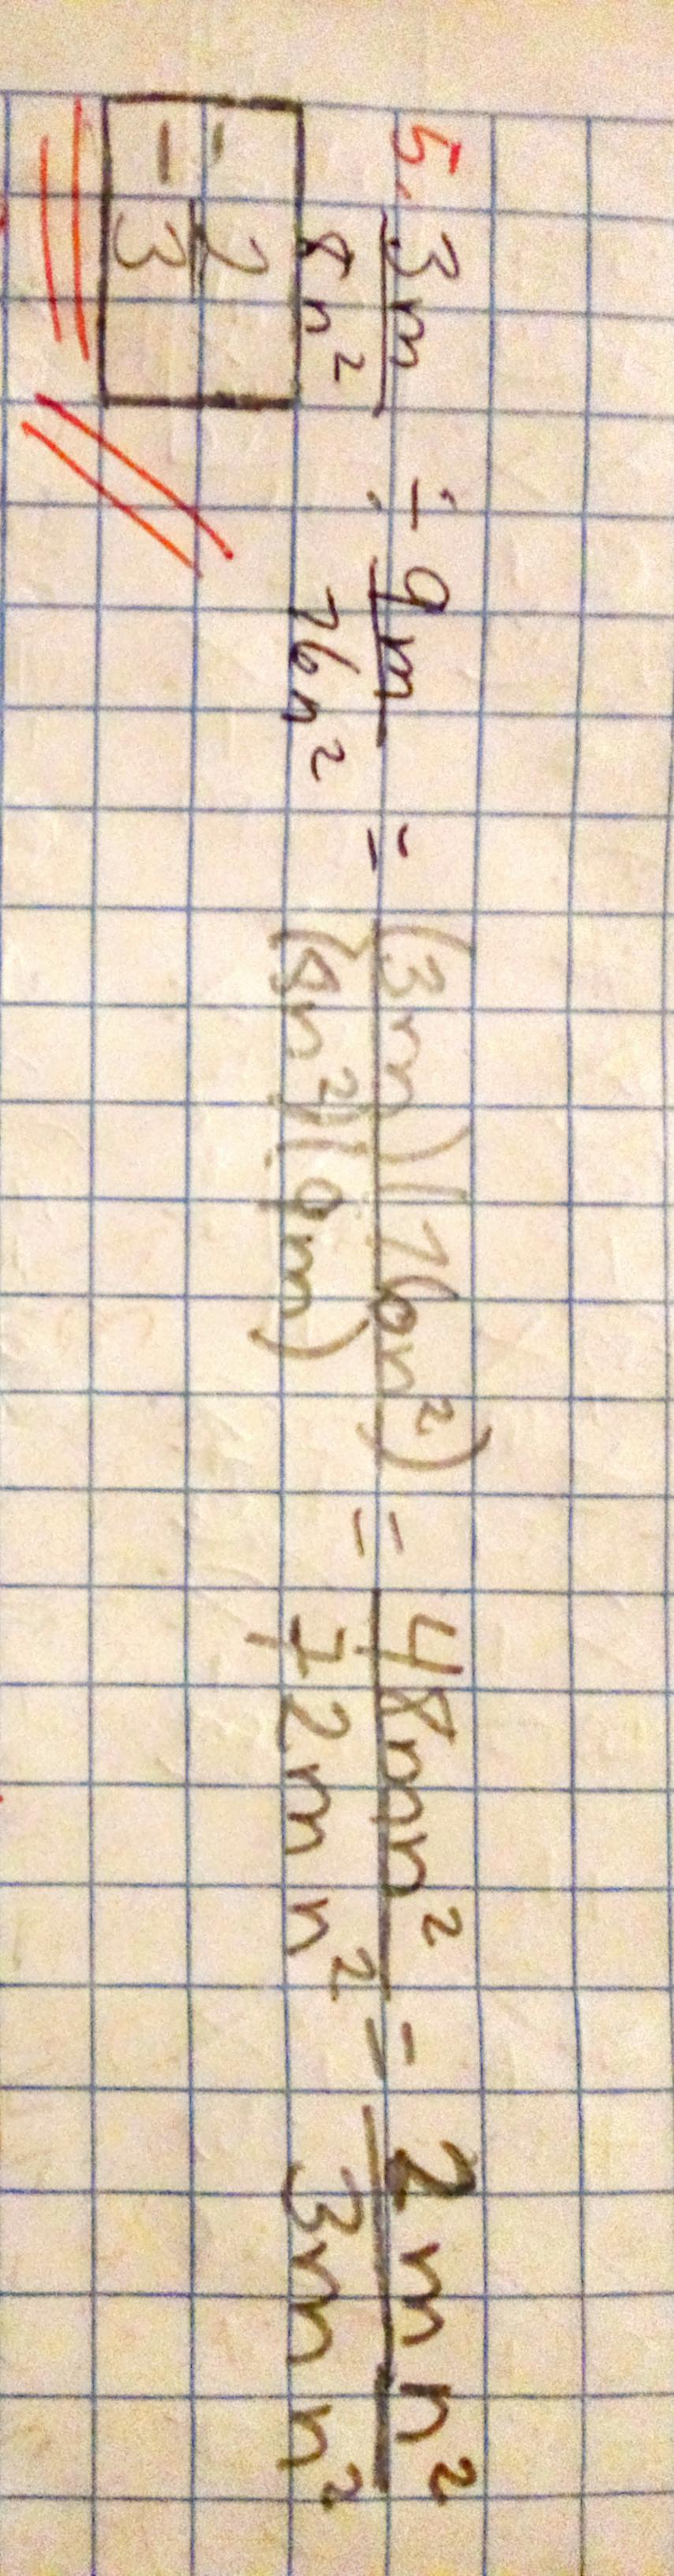 5. 3m/8n² ÷ 9m/16n² = (3m)(16n²)/(8n²)(9m) = 48mn²/72mn² = 2mn²/3mn²
= 2/3